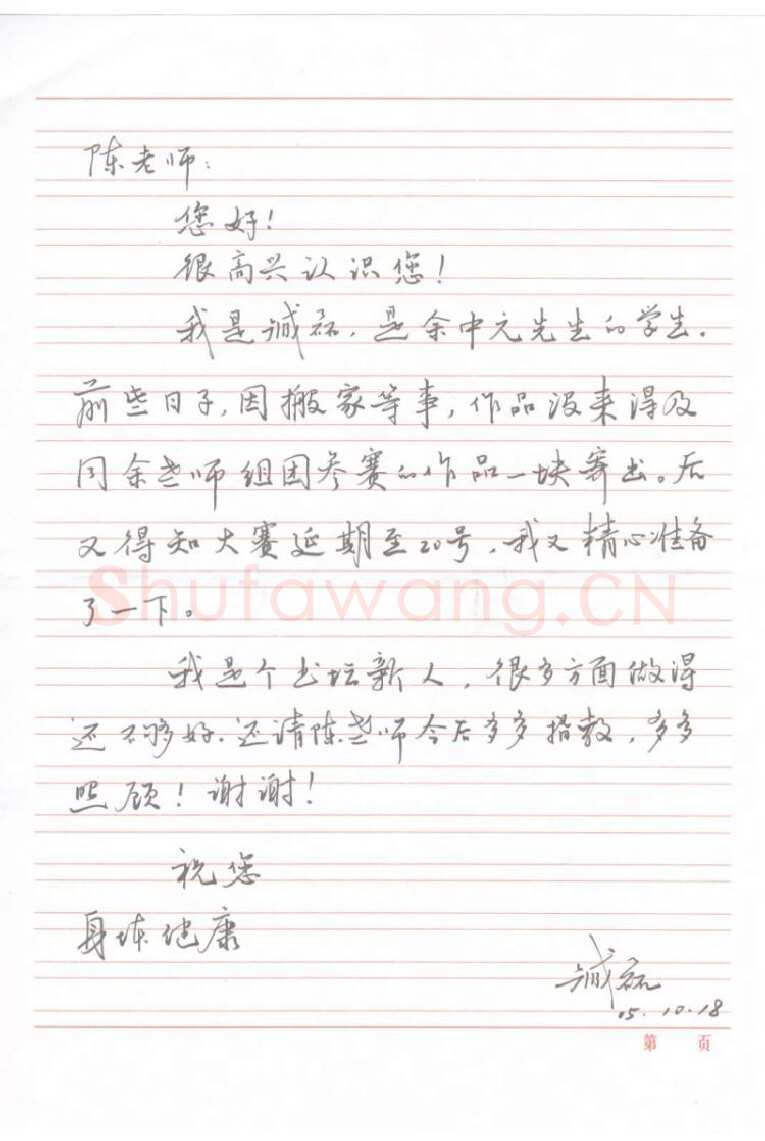 陈老师:
您好!
很高兴认识您!
我是臧磊,是余中元先生的学生.
前些日子,因搬家等事,作品没来得及
同余老师组团参赛的作品一块寄出。后
又得知大赛延期至20号,我又精心准备
了一下。
Shufawang.CN
我是个书坛新人,很多方面做得
还不够好.还请陈老师今后多多指教,多多
照顾!谢谢!
祝您
身体健康
臧磊
15.10.18
第 页